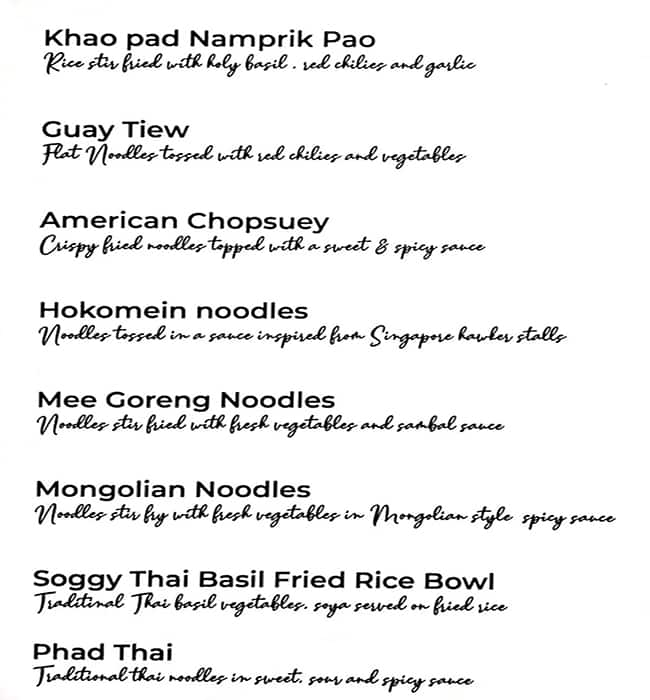 Khao pad Namprik Pao
Rice stir fried with holy basil . red chilies and garlic
Guay Tiew
Flat Noodles tossed with red chilies and vegetables
American Chopsuey
Crispy fried noodles topped with a sweet & spicy sauce
Hokomein noodles
Noodles tossed in a sauce inspired from Singapore hawker stalls
Mee Goreng Noodles
Noodles stir fried with fresh vegetables and sambal sauce
Mongolian Noodles
Noodles stir fry with fresh vegetables in Mongolian style spicy sauce
Soggy Thai Basil Fried Rice Bowl
Traditinal Thai basil vegetables. soya served on fried rice
Phad Thai
Traditional thai noodles in sweet. sour and spicy sauce